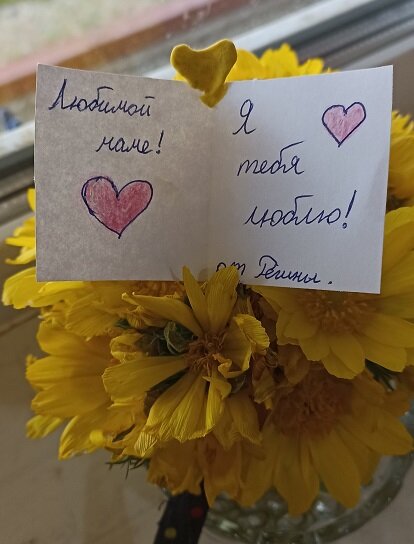 Любимой
маме!
Я
тебя
люблю!
от Регины.